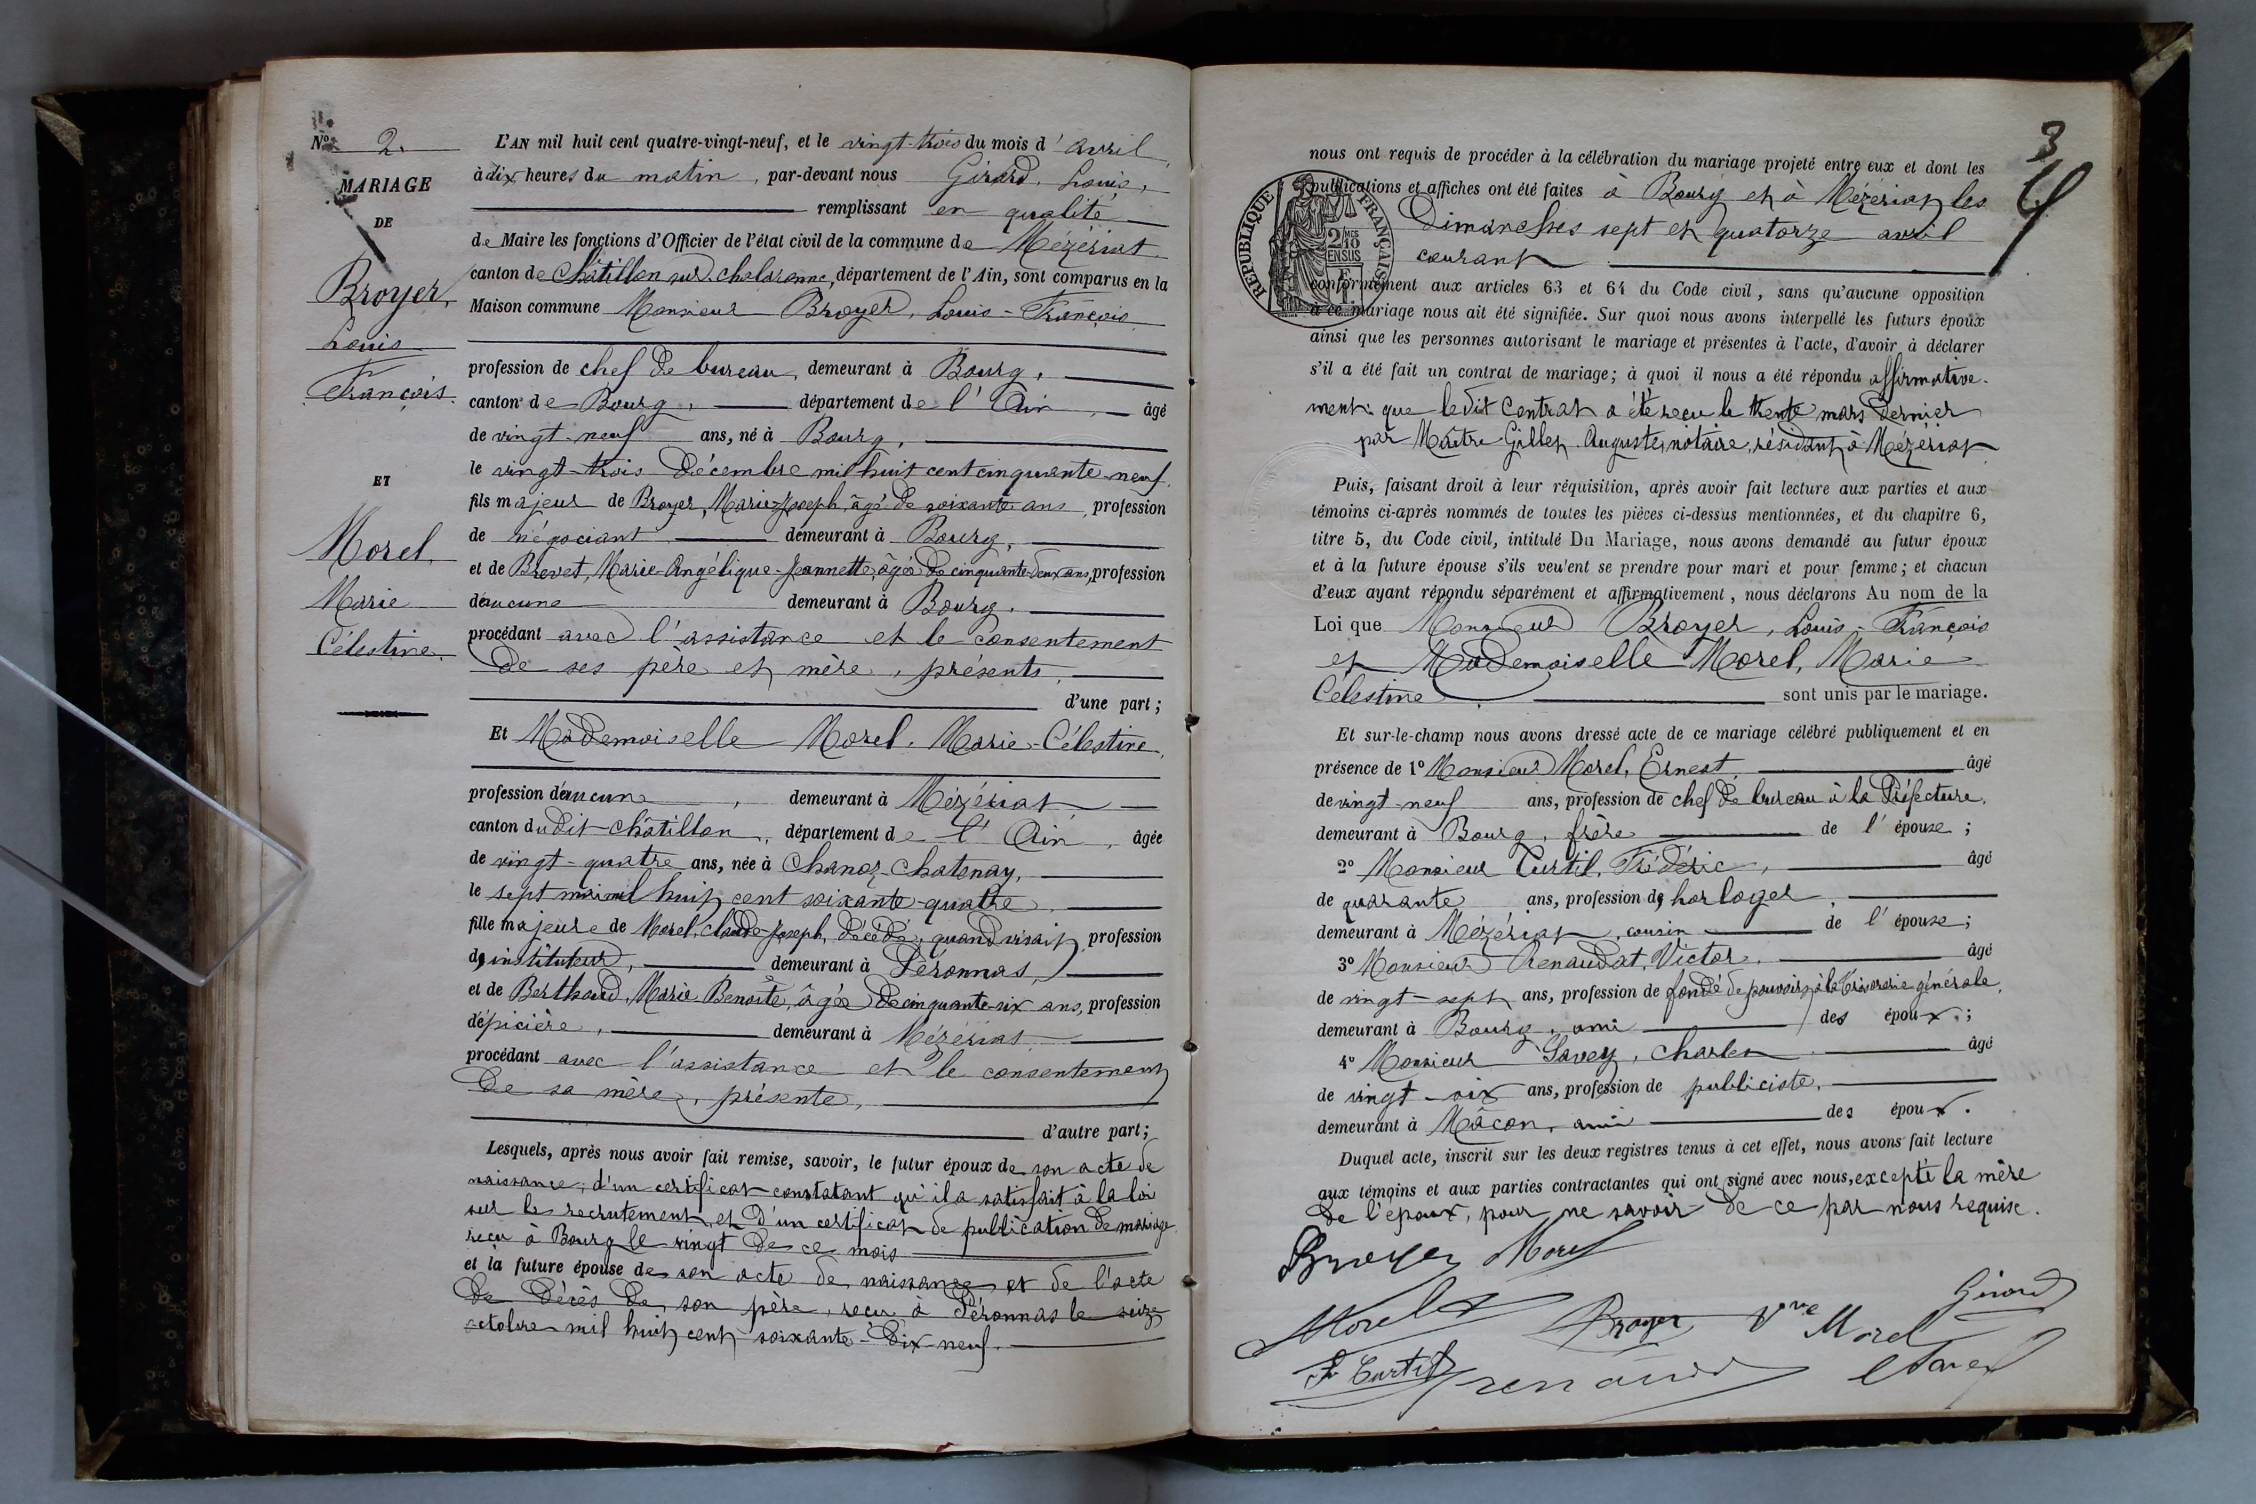 N° 2.
MARIAGE
DE
Broyer,
Louis
François.
ET
Morel,
Marie
Célestine.
L'AN mil huit cent quatre-vingt-neuf, et le vingt-trois du mois d'avril,
à dix heures du matin, par-devant nous Girard, Louis,
remplissant en qualité
de Maire les fonctions d'Officier de l'état civil de la commune de Mézériat
canton de Châtillon sur Chalaronne, département de l'Ain, sont comparus en la
Maison commune Monsieur Broyer, Louis-François
profession de chef de bureau, demeurant à Bourg,
canton de Bourg, département de l'Ain, âgé
de vingt-neuf ans, né à Bourg,
le vingt-trois Décembre mil huit cent cinquante-neuf,
fils majeur de Broyer, Marie-Joseph, âgé de soixante ans, profession
de négociant demeurant à Bourg,
et de Brevet, Marie-Angélique-Jeannette, âgée de cinquante-deux ans, profession
d'aucune demeurant à Bourg.
procédant avec l'assistance et le consentement
de ses père et mère, présents,
d'une part;
Et Mademoiselle Morel, Marie-Célestine,
profession d'aucune, demeurant à Mézériat
canton dudit Châtillon, département de l'Ain, âgée
de vingt-quatre ans, née à Chanoz-Chatenay,
le sept mai mil huit cent soixante-quatre,
fille majeure de Morel, Claude-Joseph, décédé, quand vivait, profession
d'instituteur, demeurant à Péronnas,
et de Berthoud, Marie Benoîte, âgée de cinquante-six ans, profession
d'épicière, demeurant à Mézériat
procédant avec l'assistance et le consentement
de sa mère, présente,
d'autre part;
Lesquels, après nous avoir fait remise, savoir, le futur époux de son acte de
naissance, d'un certificat constatant qu'il a satisfait à la loi
sur le recrutement, et d'un certificat de publication de mariage
reçu à Bourg le vingt de ce mois
et la future épouse de son acte de naissance et de l'acte
de décès de son père, reçu à Péronnas le seize
octobre mil huit cent soixante-dix-neuf.
3
nous ont requis de procéder à la célébration du mariage projeté entre eux et dont les
publications et affiches ont été faites à Bourg et à Mézériat les
Dimanches sept et quatorze avril
courant
RÉPUBLIQUE FRANÇAISE
2/10 MES
EN SUS
conformément aux articles 63 et 64 du Code civil, sans qu'aucune opposition
à ce mariage nous ait été signifiée. Sur quoi nous avons interpellé les futurs époux
ainsi que les personnes autorisant le mariage et présentes à l'acte, d'avoir à déclarer
s'il a été fait un contrat de mariage; à quoi il nous a été répondu affirmative-
ment: que ledit contrat a été reçu le trente mars dernier
par Maître Gillet Auguste, notaire, résidant à Mézériat
Puis, faisant droit à leur réquisition, après avoir fait lecture aux parties et aux
témoins ci-après nommés de toutes les pièces ci-dessus mentionnées, et du chapitre 6,
titre 5, du Code civil, intitulé Du Mariage, nous avons demandé au futur époux
et à la future épouse s'ils veulent se prendre pour mari et pour femme; et chacun
d'eux ayant répondu séparément et affirmativement, nous déclarons Au nom de la
Loi que Monsieur Broyer, Louis-François
et Mademoiselle Morel, Marie
Célestine sont unis par le mariage.
Et sur-le-champ nous avons dressé acte de ce mariage célébré publiquement et en
présence de 1° Monsieur Morel, Ernest, âgé
de vingt-neuf ans, profession de chef de bureau à la Préfecture,
demeurant à Bourg, frère de l'épouse;
2° Monsieur Curtil, Frédéric, âgé
de quarante ans, profession d'horloger,
demeurant à Mézériat, cousin de l'épouse;
3° Monsieur Renaudat, Victor, âgé
de vingt-sept ans, profession de fondé de pouvoirs à la Trésorerie générale,
demeurant à Bourg, ami des époux;
4° Monsieur Savey, Charles âgé
de vingt-six ans, profession de publiciste,
demeurant à Mâcon, ami des époux.
Duquel acte, inscrit sur les deux registres tenus à cet effet, nous avons fait lecture
aux témoins et aux parties contractantes qui ont signé avec nous, excepté la mère
de l'époux, pour ne savoir de ce par nous requise.
Broyer Morel
Girard
Morel Broyer Vve Morel
F. Curtil Renaud C Savey